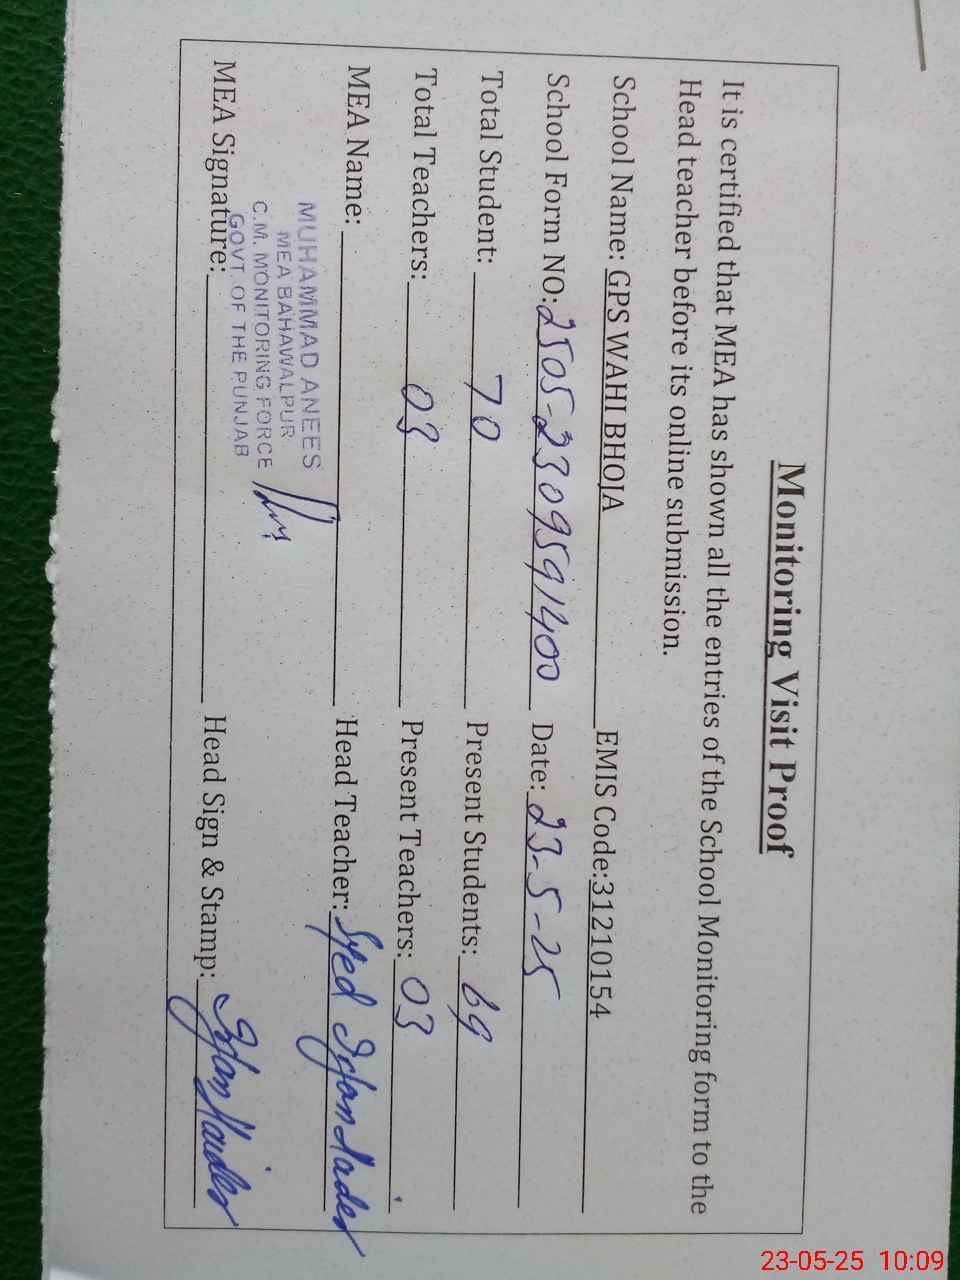 Monitoring Visit Proof
It is certified that MEA has shown all the entries of the School Monitoring form to the
Head teacher before its online submission.
School Name: GPS WAHI BHOJA EMIS Code:31210154
School Form NO: 2505-2309591400 Date: 23-5-25
Total Student: 70 Present Students: 69
Total Teachers: 03 Present Teachers: 03
MEA Name: Head Teacher: Syed Haider
MUHAMMAD ANEES
MEA BAHAWALPUR
C.M. MONITORING FORCE
GOVT. OF THE PUNJAB
MEA Signature: Head Sign & Stamp: Haider
23-05-25 10:09